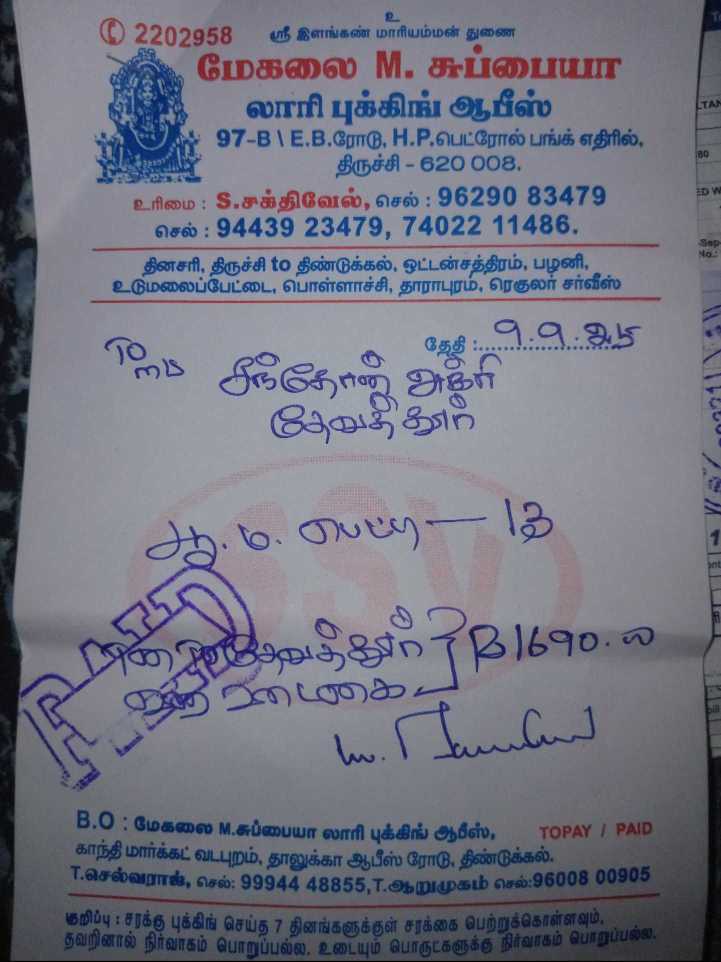 உ
ஸ்ரீ இளங்கண் மாரியம்மன் துணை
✆ 2202958
மேகலை M. சுப்பையா
லாரி புக்கிங் ஆபீஸ்
97-B \ E.B.ரோடு, H.P.பெட்ரோல் பங்க் எதிரில்,
திருச்சி - 620 008.
உரிமை : S.சக்திவேல், செல் : 96290 83479
செல் : 94439 23479, 74022 11486.
தினசரி, திருச்சி to திண்டுக்கல், ஒட்டன்சத்திரம், பழனி,
உடுமலைப்பேட்டை, பொள்ளாச்சி, தாராபுரம், ரெகுலர் சர்வீஸ்
தேதி : 9.9.25
தேவத்தூர்
பெட்டி — 13
PAID
தேவத்தூர் } B1690.
B.O : மேகலை M.சுப்பையா லாரி புக்கிங் ஆபீஸ்,
TOPAY / PAID
காந்தி மார்க்கட் வடபுறம், தாலுக்கா ஆபீஸ் ரோடு, திண்டுக்கல்.
T.செல்வராஜ், செல்: 99944 48855,T.ஆறுமுகம் செல்:96008 00905
குறிப்பு : சரக்கு புக்கிங் செய்த 7 தினங்களுக்குள் சரக்கை பெற்றுக்கொள்ளவும்.
தவறினால் நிர்வாகம் பொறுப்பல்ல. உடையும் பொருட்களுக்கு நிர்வாகம் பொறுப்பல்ல.